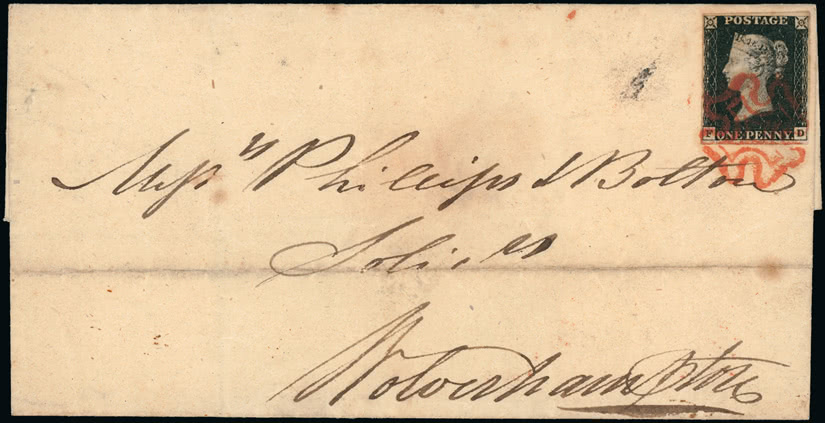 POSTAGE
F ONE PENNY D
Messrs Phillips & Bolton
Solic.rs
Wolverhampton